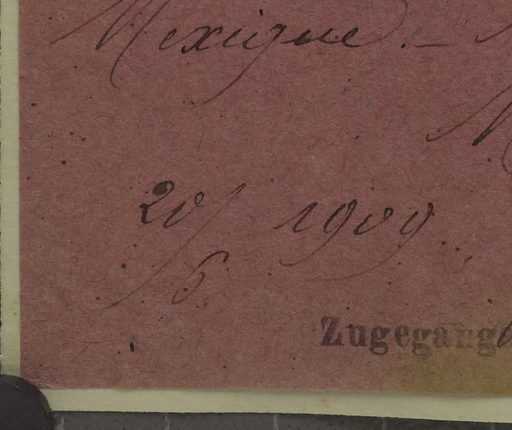 Mexique. —
20/6 1909
Zugegang